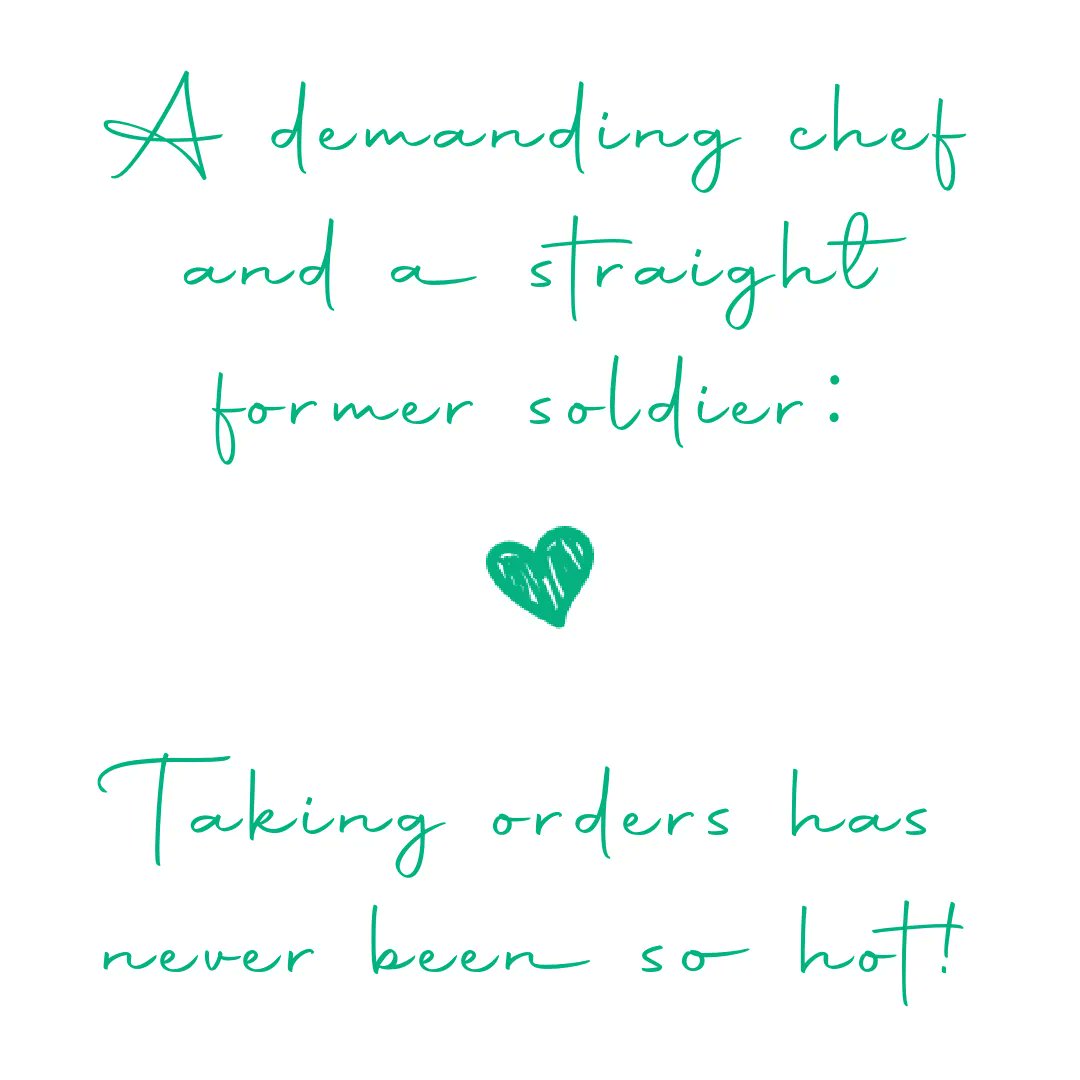 A demanding chef
and a straight
former soldier:
Taking orders has
never been so hot!